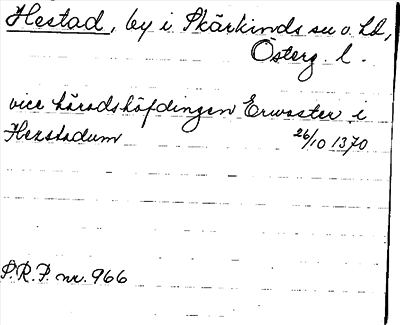 Hestad, by i Skärkinds sn o. hd,
Österg. l.
vice häradshöfdingen Erwaster i
Hexstadum 26/10 1370
S.R.P. nr. 966